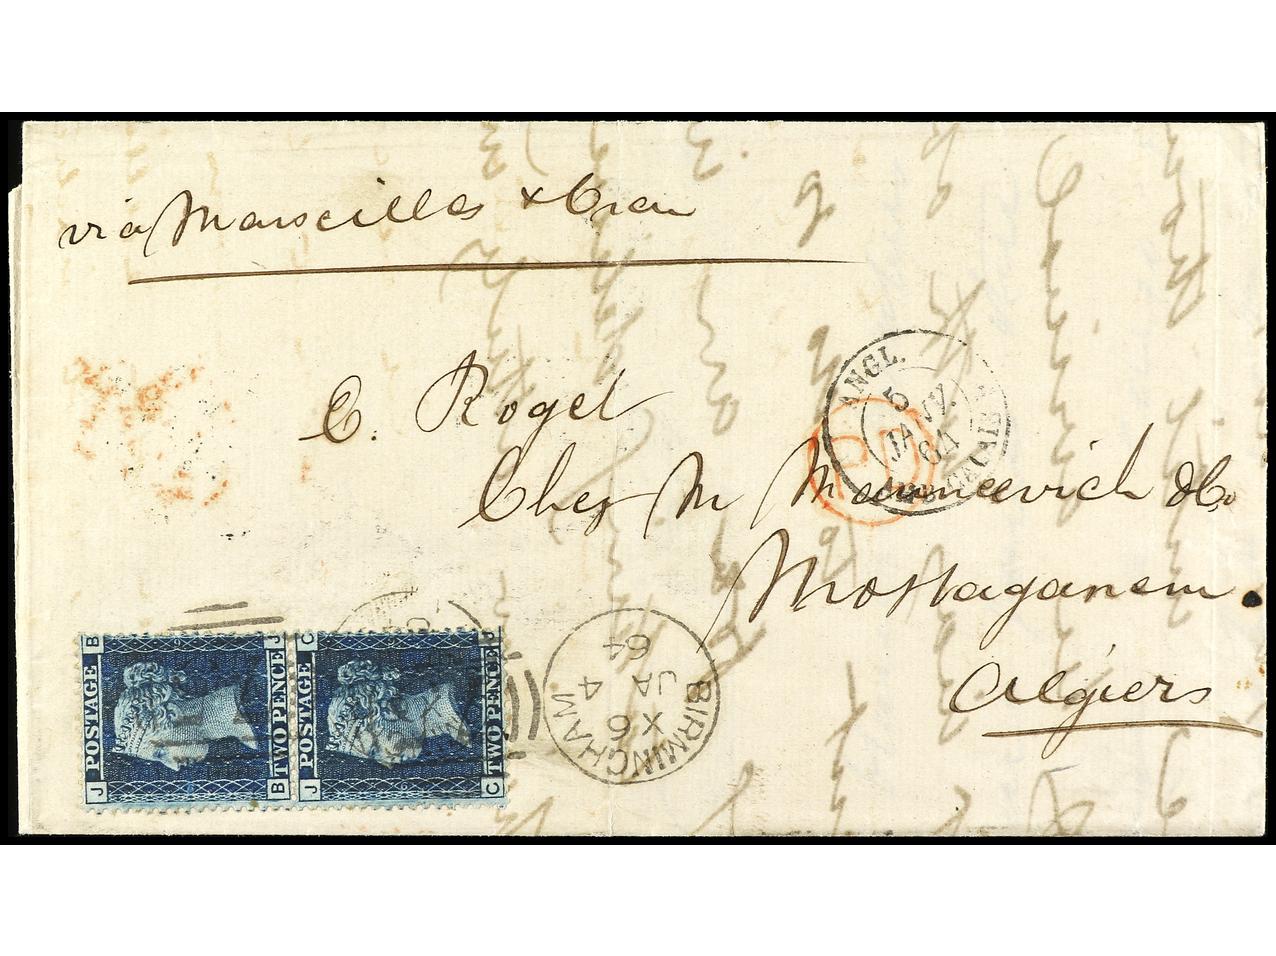 via Marseilles & Oran
C. Roget
Chez M Maunceevich & Co
Mostaganem.
Algiers
ANGL.
5
JANV.
64
CALAIS
PD
BIRMINGHAM
X6
JA 4
64
B J
POSTAGE
TWO PENCE
J B
C J
POSTAGE
TWO PENCE
J C